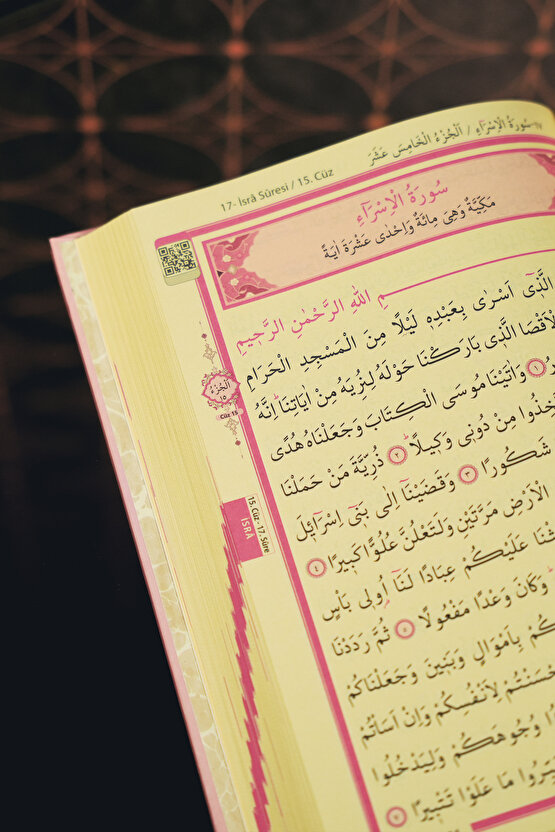 17- İsrâ Sûresi / 15. Cüz
١٧-سُورَةُ الْاِسْرَٓاءِ / اَلْجُزْءُ الْخَامِسَ عَشَرَ
سُورَةُ الْاِسْرَٓاءِ
مَكِّيَّةٌ وَهِيَ مِائَةٌ وَاِحْدٰى عَشْرَةَ اٰيَةً
مِ اللّٰهِ الرَّحْمٰنِ الرَّحٖيمِ
الَّذٖٓي اَسْرٰى بِعَبْدِهٖ لَيْلًا مِنَ الْمَسْجِدِ الْحَرَامِ
الْاَقْصَا الَّذٖي بَارَكْنَا حَوْلَهُ لِنُرِيَهُ مِنْ اٰيَاتِنَا اِنَّهُ
١ وَاٰتَيْنَا مُوسَى الْكِتَابَ وَجَعَلْنَاهُ هُدًى
تَتَّخِذُوا مِنْ دُونٖي وَكٖيلًا ٢ ذُرِّيَّةَ مَنْ حَمَلْنَا
شَكُورًا ٣ وَقَضَيْنَٓا اِلٰى بَنٖٓي اِسْرَٓائٖلَ
الْاَرْضِ مَرَّتَيْنِ وَلَتَعْلُنَّ عُلُوًّا كَبٖيرًا ٤
عَلَيْكُمْ عِبَادًا لَنَٓا اُولٖي بَأْسٍ
وَكَانَ وَعْدًا مَفْعُولًا ٥ ثُمَّ رَدَدْنَا
بِاَمْوَالٍ وَبَنٖينَ وَجَعَلْنَاكُمْ
اَحْسَنْتُمْ لِاَنْفُسِكُمْ وَاِنْ اَسَأْتُمْ
وُجُوهَكُمْ وَلِيَدْخُلُوا
مَا عَلَوْا تَتْبٖيرًا ٧
اَلْجُزْءُ
١٥
Cüz 15
15. Cüz - 17. Sûre
İSRÂ